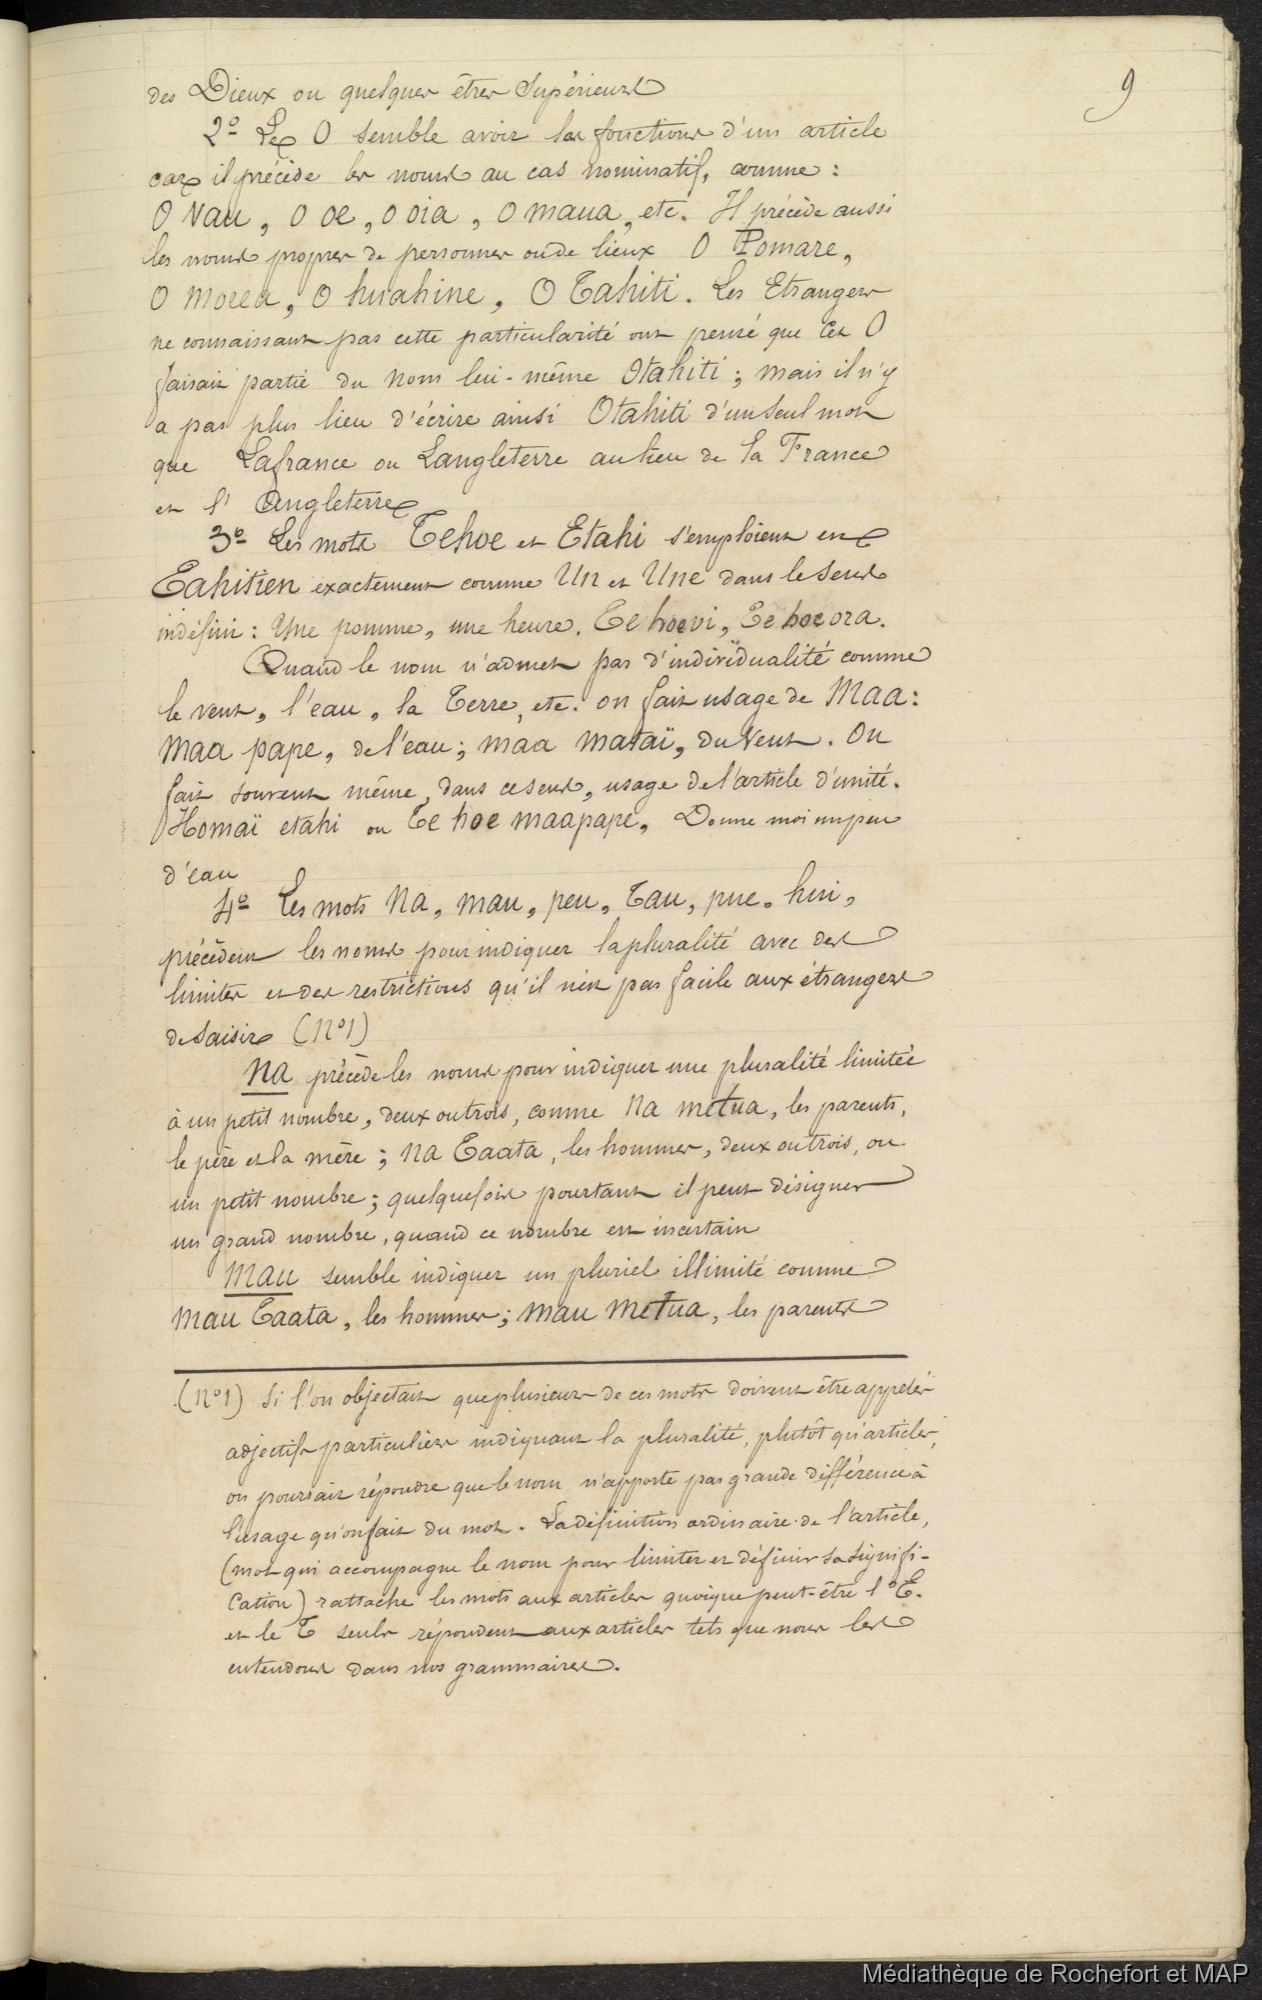 9
des Dieux ou quelques êtres Supérieurs
2º Le O semble avoir les fonctions d'un article
car il précède les noms au cas nominatif, comme :
O Vau, O oe, O oia, O maua, etc. Il précède aussi
les noms propres de personnes ou de lieux O Pomare,
O Morea, O huahine, O Tahiti. Les Etrangers
ne connaissant pas cette particularité ont pensé que cet O
faisait partie du nom lui-même Otahiti ; mais il n'y
a pas plus lieu d'écrire ainsi Otahiti d'un seul mot
que Lafrance ou Langleterre au lieu de la France
et l'Angleterre
3º Les mots Tehoe et Etahi s'emploient en
Tahitien exactement comme Un et Une dans le sens
indéfini : Une pomme, une heure. Te hoe vi, Te hoe ora.
Quand le nom n'admet pas d'individualité comme
le vent, l'eau, la Terre, etc. on fait usage de Maa :
Maa pape, de l'eau ; maa mataï, du Vent. On
fait souvent même, dans ce sens, usage de l'article d'unité.
Homaï etahi ou Te hoe maapape, Donne moi un peu
d'eau
4º Les mots Na, mau, peu, Tau, pue, hui,
précèdent les noms pour indiquer la pluralité avec des
limites et des restrictions qu'il n'est pas facile aux étrangers
de saisir (Nº1)
Na précède les noms pour indiquer une pluralité limitée
à un petit nombre, deux ou trois, comme Na metua, les parents,
le père et la mère ; Na Taata, les hommes, deux ou trois, ou
un petit nombre ; quelquefois pourtant il peut désigner
un grand nombre, quand ce nombre est incertain
Mau semble indiquer un pluriel illimité comme
Mau Taata, les hommes ; Mau Metua, les parents
(Nº1) Si l'on objectait que plusieurs de ces mots doivent être appelés
adjectifs particuliers indiquant la pluralité, plutôt qu'articles,
on pourrait répondre que le nom n'apporte pas grande différence à
l'usage qu'on fait du mot. La définition ordinaire de l'article,
(mot qui accompagne le nom pour limiter et définir sa signifi-
cation) rattache les mots aux articles quoique peut-être l'E.
et le T seuls répondent aux articles tels que nous les
entendons dans nos grammaires.
Médiathèque de Rochefort et MAP